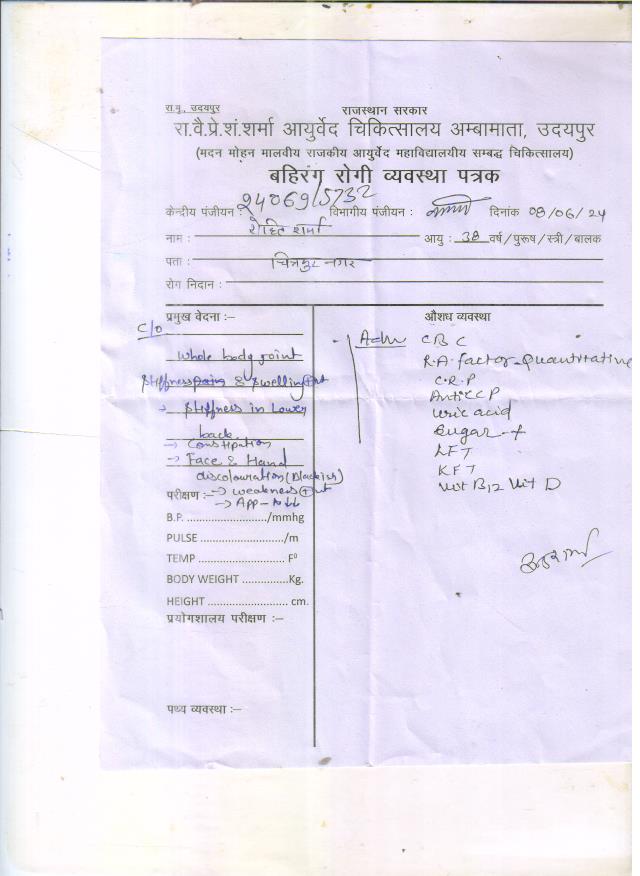 रा.यू., उदयपुर
राजस्थान सरकार
रा.वै.प्रे.शं.शर्मा आयुर्वेद चिकित्सालय अम्बामाता, उदयपुर
(मदन मोहन मालवीय राजकीय आयुर्वेद महाविद्यालयीय सम्बद्ध चिकित्सालय)
बहिरंग रोगी व्यवस्था पत्रक
केन्द्रीय पंजीयन : 24069/5732 विभागीय पंजीयन : दिनांक 08/06/24
नाम : रोहित शर्मा आयु : 38 वर्ष/पुरूष/स्त्री/बालक
पता : चित्रकुट नगर
रोग निदान :
प्रमुख वेदना :–
C/o
Whole body joint
Stiffness pain & swelling
→ Stiffness in Lower
back
→ Constipation
→ Face & Hand
discolouration (Blackish)
परीक्षण :– → weakness
→ App-
B.P. ............................/mmhg
PULSE ............................/m
TEMP ............................ F⁰
BODY WEIGHT ...............Kg.
HEIGHT ............................ cm.
प्रयोगशालय परीक्षण :–
पथ्य व्यवस्था :–
औशध व्यवस्था
Adv CBC
R.A. factor - Quantitative
C.R.P
Anti CCP
Uric acid
Sugar - f
LFT
KFT
Vit B12 Vit D